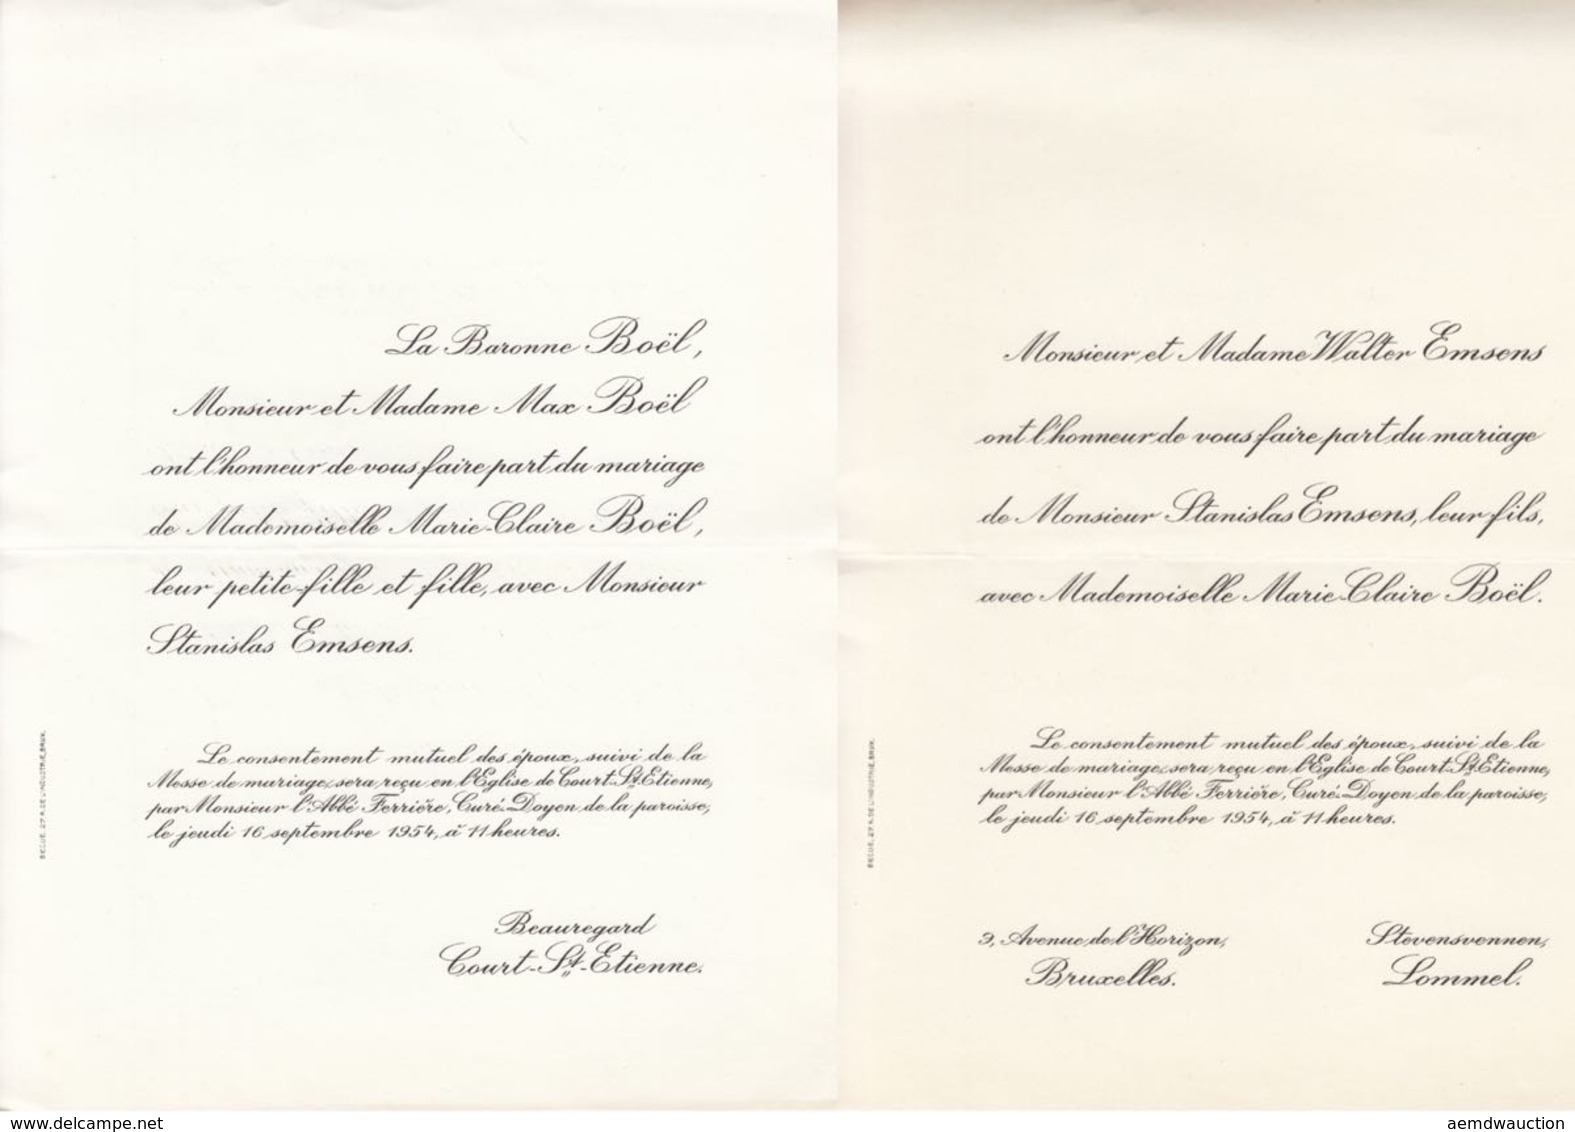 La Baronne Boël,
Monsieur et Madame Max Boël
ont l'honneur de vous faire part du mariage
de Mademoiselle Marie-Claire Boël,
leur petite-fille et fille, avec Monsieur
Stanislas Emsens.
Le consentement mutuel des époux, suivi de la
Messe de mariage, sera reçu en l'Eglise de Court-St-Etienne,
par Monsieur l'Abbé Ferrière, Curé-Doyen de la paroisse,
le jeudi 16 septembre 1954, à 11 heures.
Beauregard
Court-St-Etienne.
BECUE, 27 R. DE L'INDUSTRIE, BRUX.
Monsieur et Madame Walter Emsens
ont l'honneur de vous faire part du mariage
de Monsieur Stanislas Emsens, leur fils,
avec Mademoiselle Marie-Claire Boël.
Le consentement mutuel des époux, suivi de la
Messe de mariage, sera reçu en l'Eglise de Court-St-Etienne,
par Monsieur l'Abbé Ferrière, Curé-Doyen de la paroisse,
le jeudi 16 septembre 1954, à 11 heures.
3, Avenue de l'Horizon,
Bruxelles.
Stevensvennen,
Lommel.
BECUE, 27 R. DE L'INDUSTRIE, BRUX.
www.delcampe.net
aemdwauction